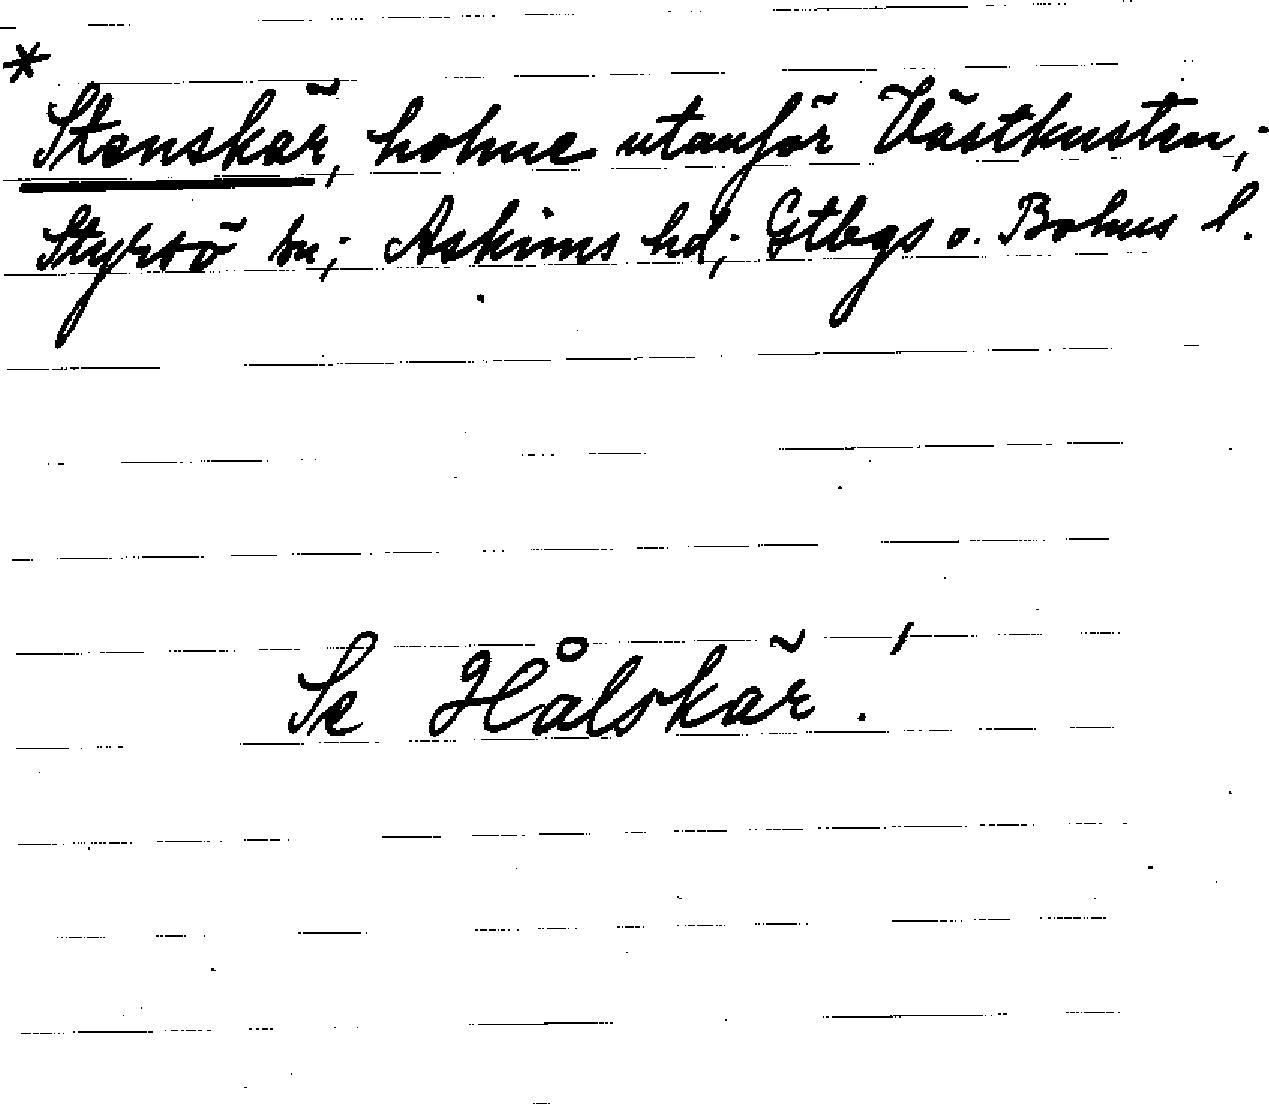 *
Stenskär, holme utanför Västkusten;
Styrsö sn; Askims hd; Gtbgs o. Bohus l.
Se Hålskär!